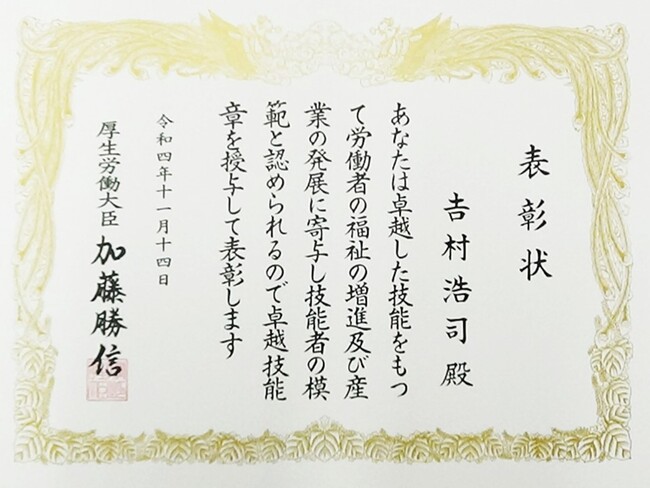 表彰状
𠮷村浩司 殿
あなたは卓越した技能をもつ
て労働者の福祉の増進及び産
業の発展に寄与し技能者の模
範と認められるので卓越技能
章を授与して表彰します
令和四年十一月十四日
厚生労働大臣 加藤勝信